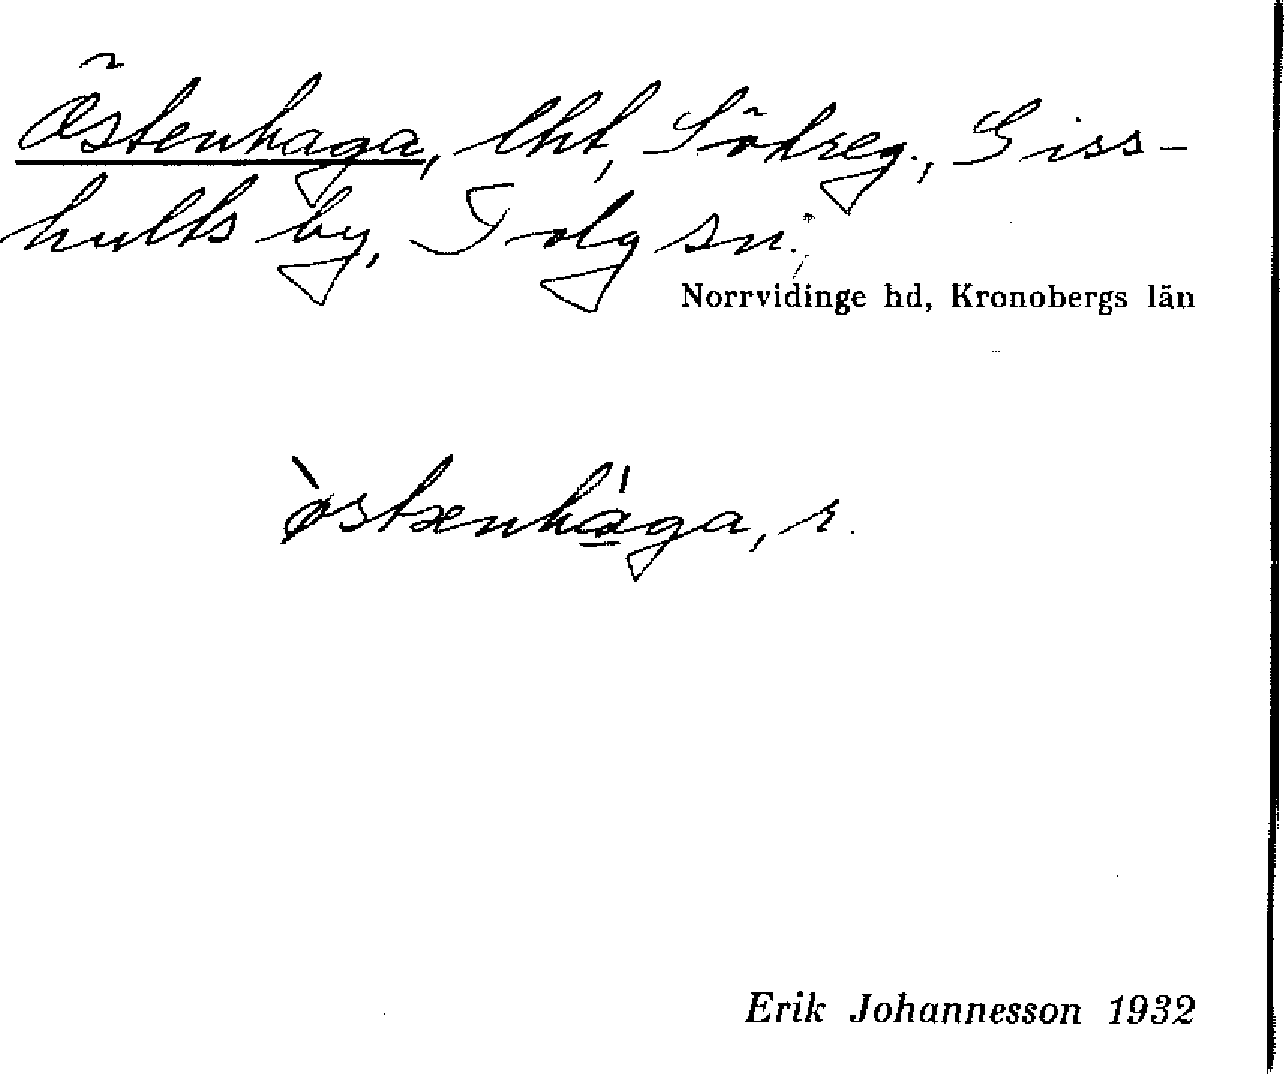 Östenhaga, lht, Södreg., Giss-
hults by, Tolg sn.
Norrvidinge hd, Kronobergs län
ò̷stænhá̱ga, r.
Erik Johannesson 1932